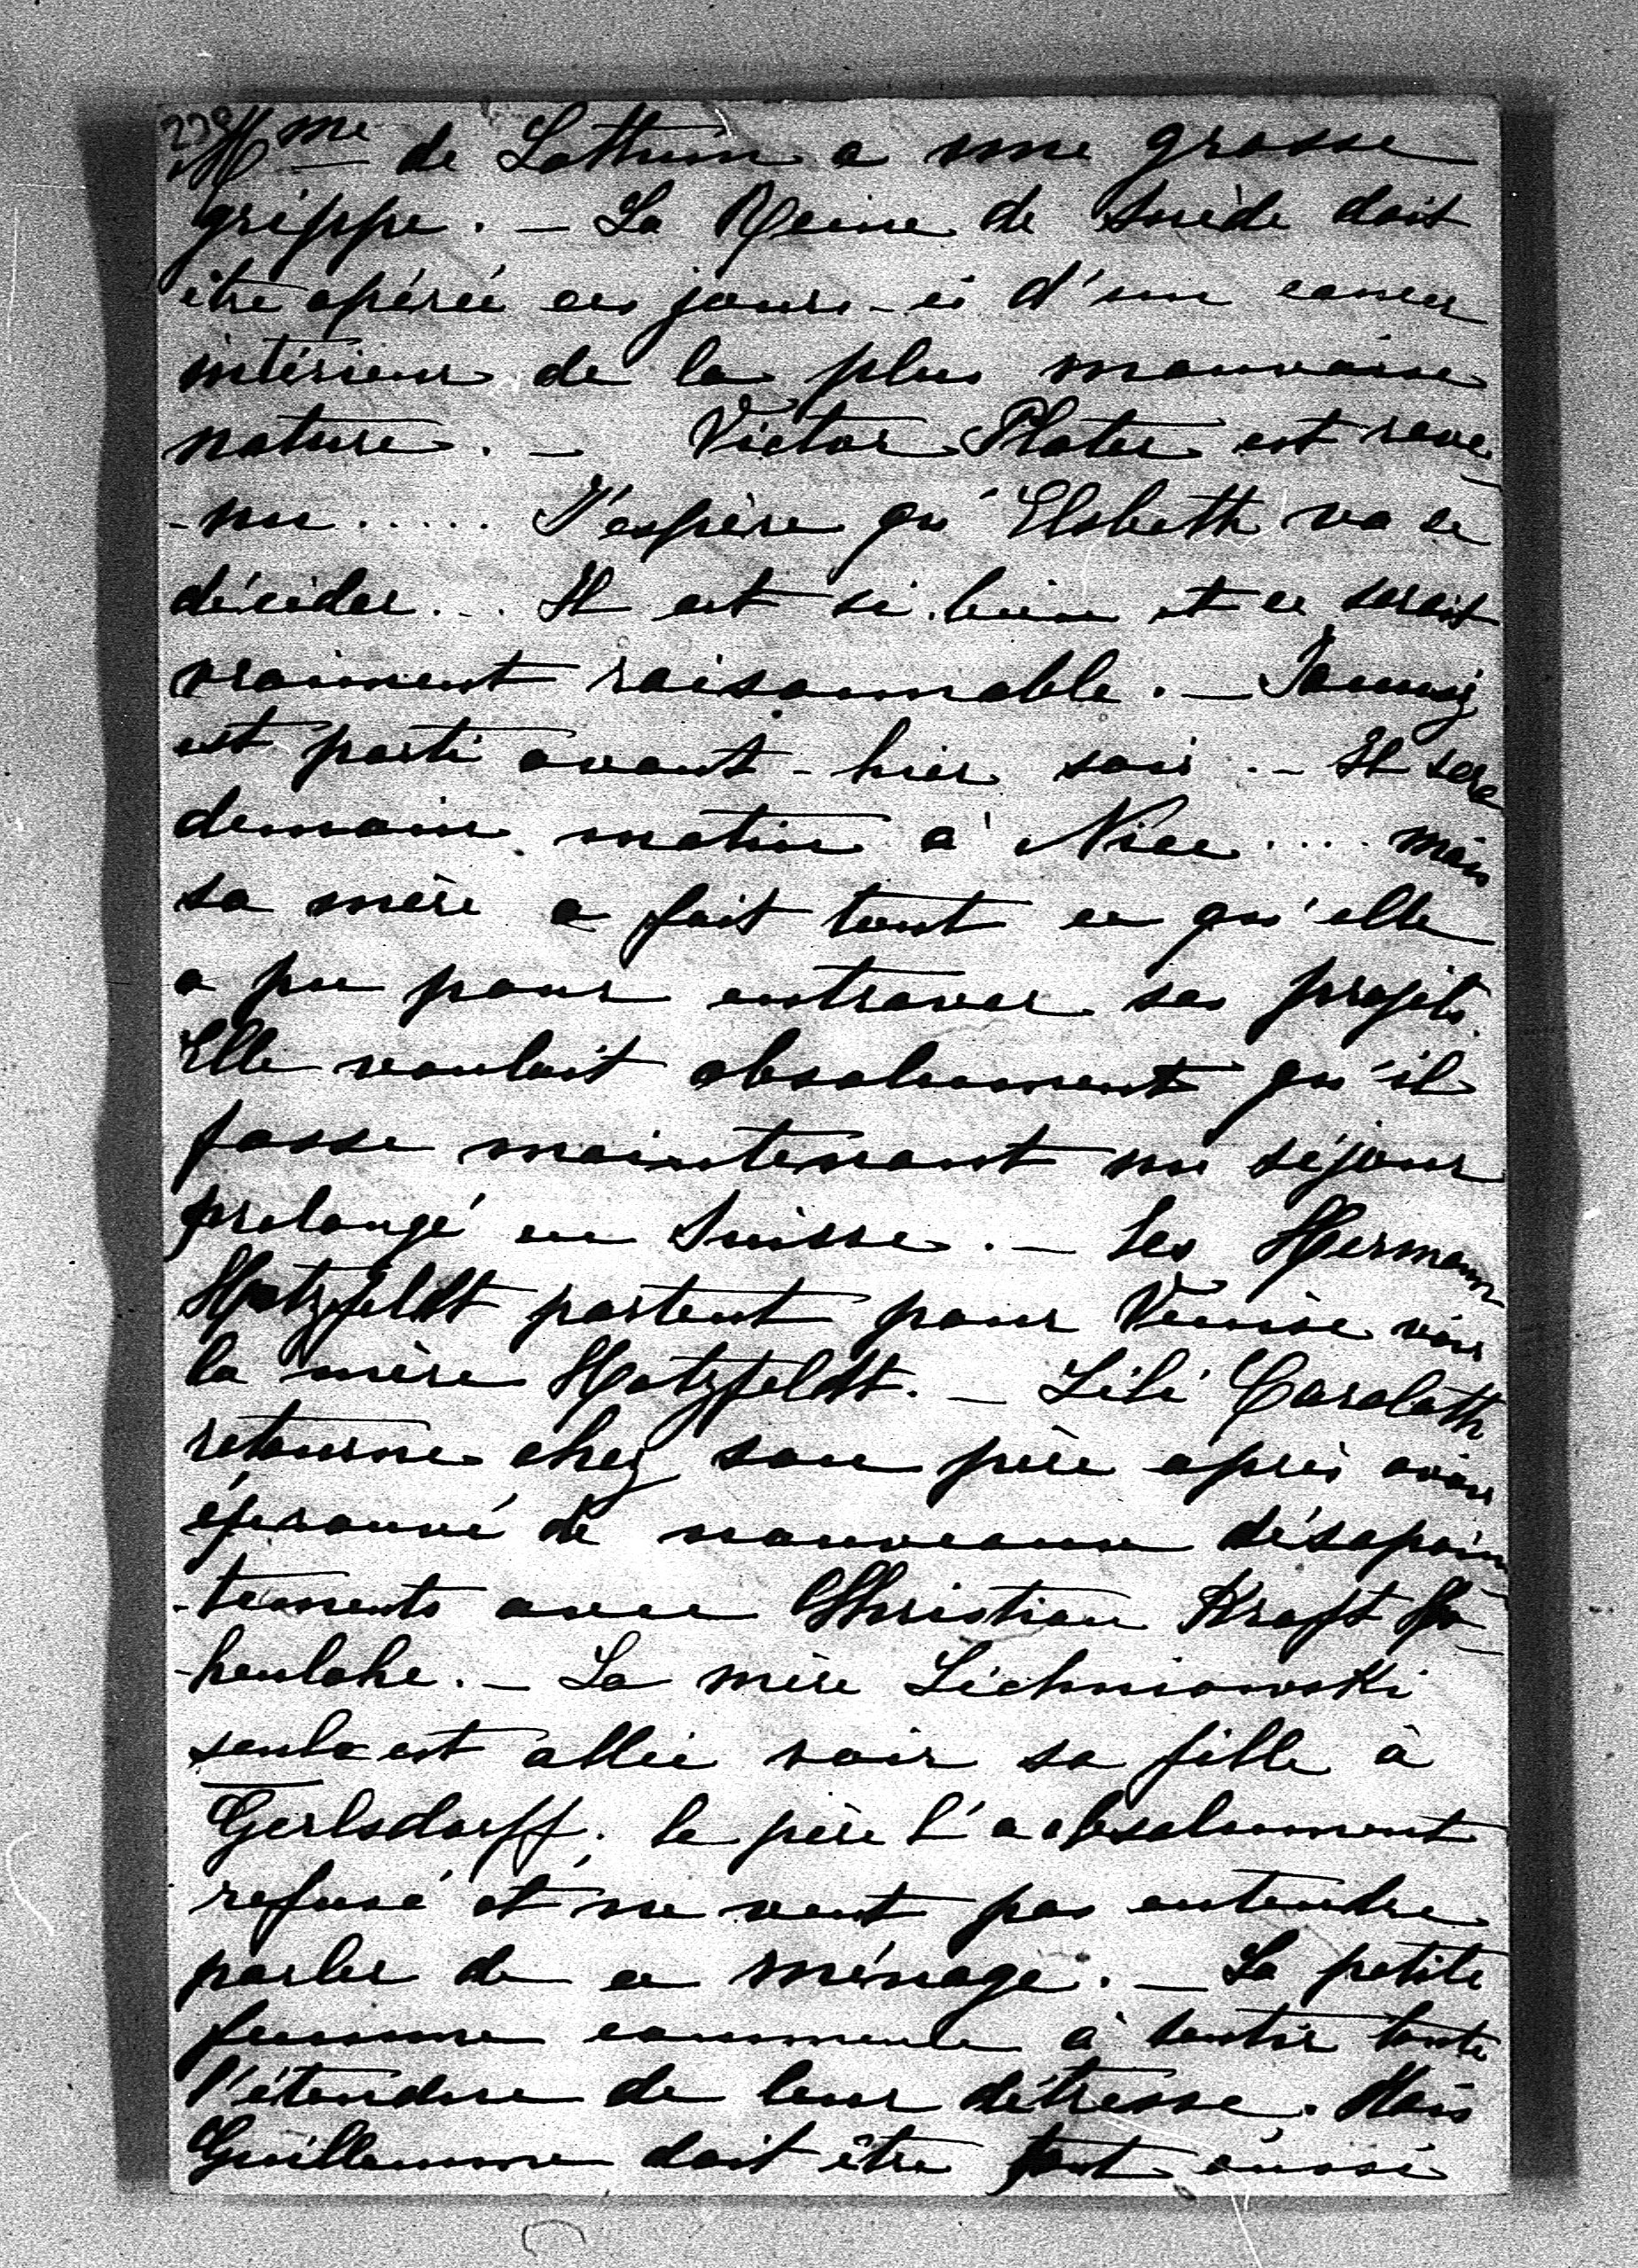 Mme de Lottum a une grosse
grippe. — La Reine de Suède doit
être opérée ces jours-ci d'un cancer
intérieur de la plus mauvaise
nature. — Victor Plater est reve-
-nu ..... J'espère qu'Elsbeth va se
décider... Il est si bien et ce serait
vraiment raisonnable. —
est parti avant-hier soir. — Il sera
demain matin à Nice .... mais
sa mère a fait tout ce qu'elle
a pu pour entraver ses projets.
Elle voulait absolument qu'il
fasse maintenant un séjour
prolongé en Suisse. — Les Hermann
Hatzfeldt partent pour Venise voir
la mère Hatzfeldt. — Lili Carolath
retourne chez son père après avoir
éprouvé de nouveaux désapoin
-tements avec Christian Kraft Ho-
-henlohe. — La mère Lichniowski
seule est allée voir sa fille à
Gerlsdorff. Le père l'a absolument
refusé et ne veut pas entendre
parler de ce ménage. — La petite
femme commence à sentir toute
l'étendue de leur détresse. Mais
Guillaume doit être tout aussi